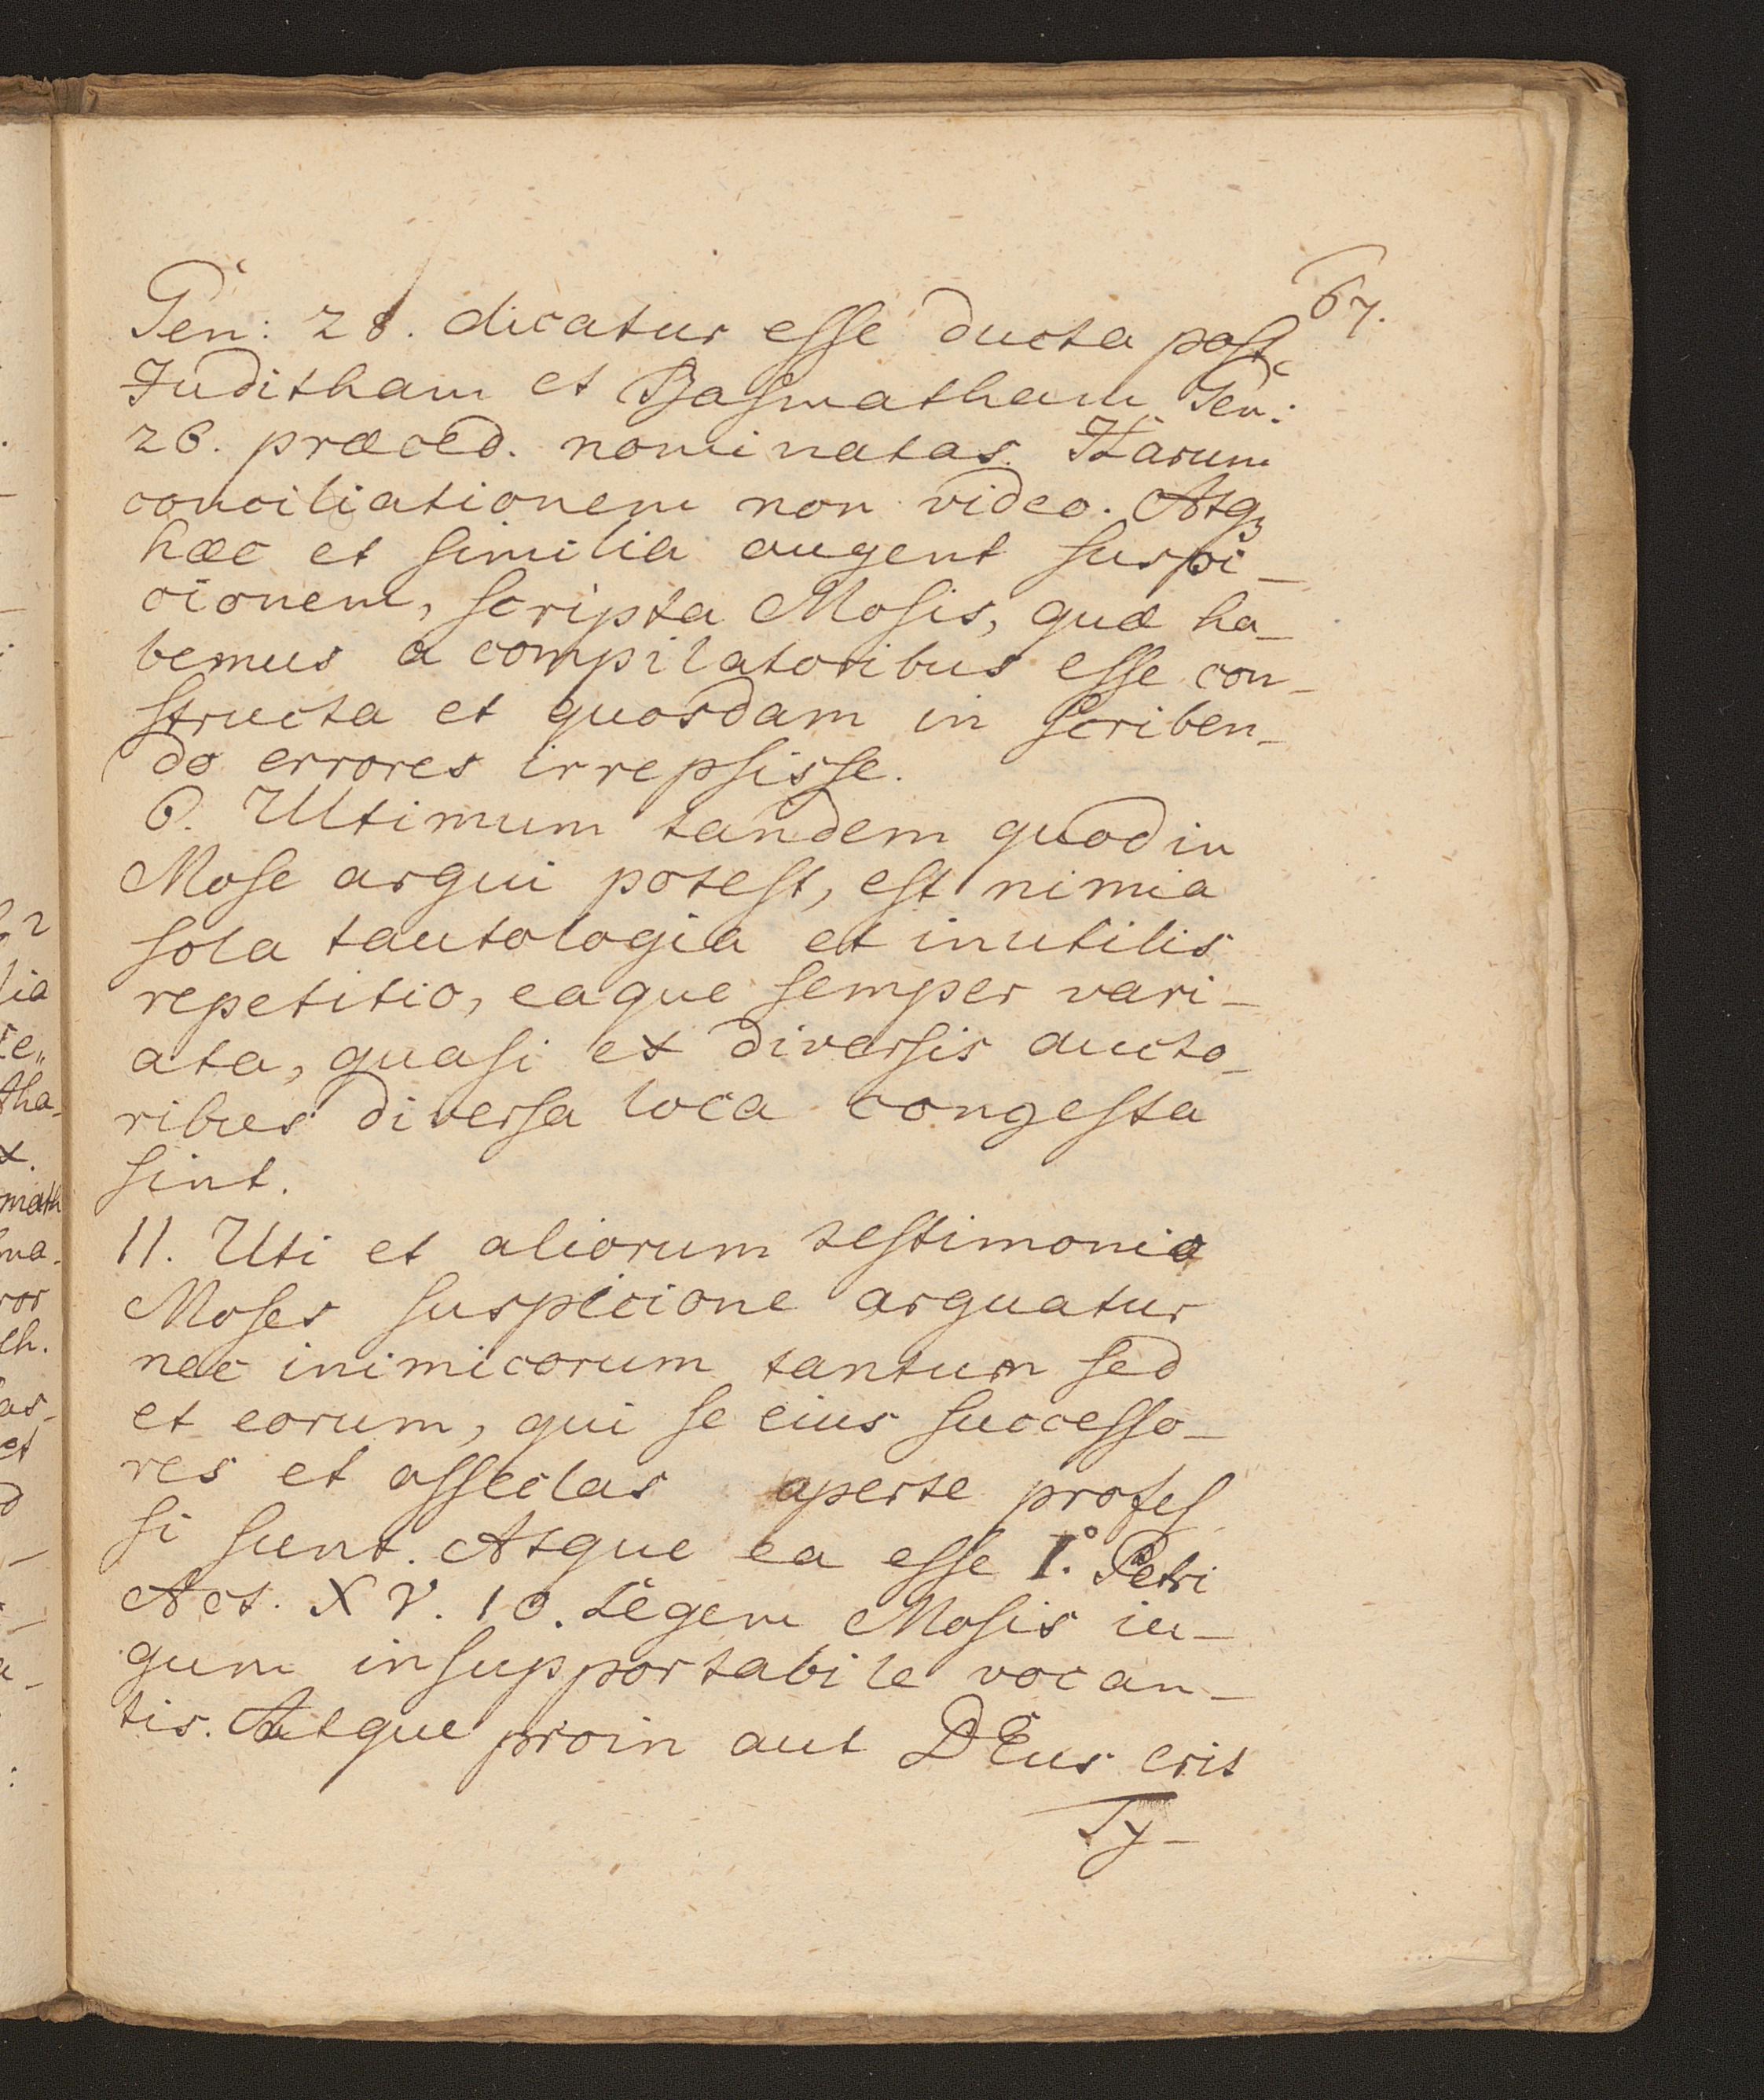 67.
Gen: 28. dicatur esse ducta post
Juditham et Basmatham Gen:
26. præced. nominatas. Harum
conciliationem non video. Atqꝫ
hæc et similia augent suspi-
cionem, scripta Mosis, quæ ha-
bemus a compilatoribus esse con-
structa et quosdam in scriben-
do errores irrepsisse.
6. Ultimum tandem quod in
Mose argui potest, est nimia
sola tautologia et inutilis
repetitio, eaque semper vari-
ata, quasi ex diversis aucto-
ribus diversa loca congesta
sint.
II. Uti et aliorum testimonio
Moses suspicione arguatur
nec inimicorum tantum sed
et eorum, qui se eius successo-
res et asseclas aperte profes
si sunt. Atque ea esse I.° Petri
Act. XV. 10. Legem Mosis iu-
gum insupportabile vocan-
tis. Atque proin aut DEus erit
Ty-